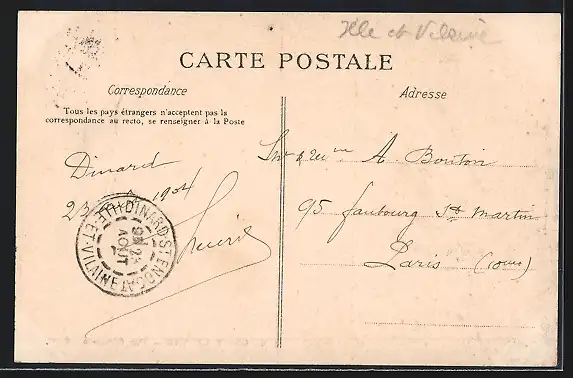 Ille et Vilaine
CARTE POSTALE
Correspondance
Tous les pays étrangers n'acceptent pas la
correspondance au recto, se renseigner à la Poste
Dinard
23 1904
DINARD-ST ENOGAT
ILLE-ET-VILAINE
AOUT
Adresse
A Bouton
95 faubourg St Martin
Paris